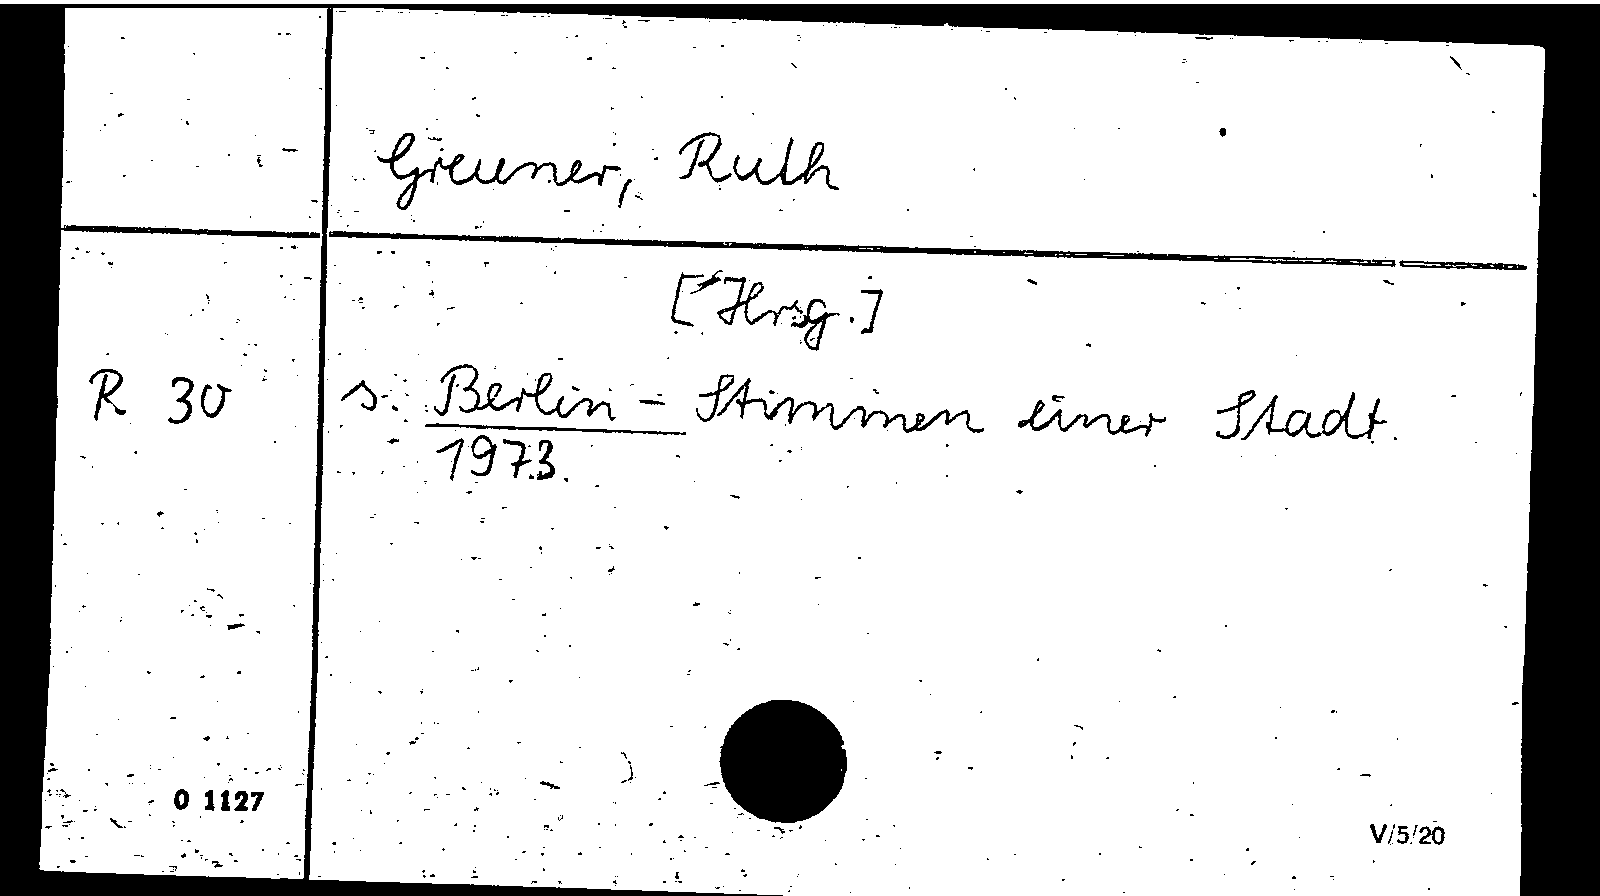 Greuner, Ruth
[Hrsg.]
R 30 s. Berlin - Stimmen einer Stadt.
1973.
0 1127
V/5/20